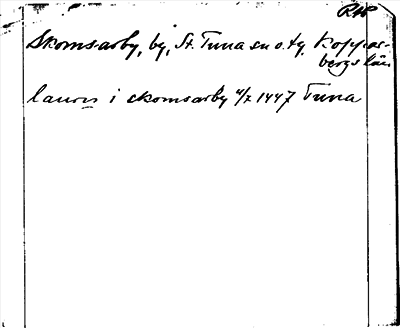 RHP
Skomsarby, by, St. Tuna sn o. tg. Koppar-
bergs län
laurn i skomsarby 4/7 1447 Tuna